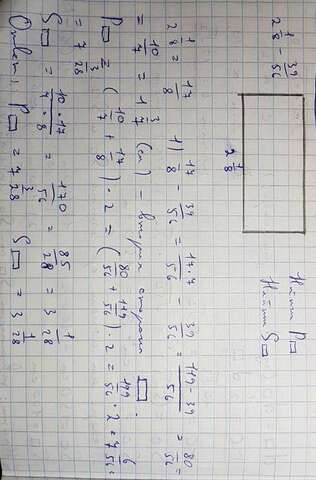 2 1/8 - 39/56 Найти P▭
Найти S▭
2 1/8
2 1/8 = 17/8 1) 17/8 - 39/56 = 17·7/56 - 39/56 = 119-39/56 = 80/56 =
= 10/7 = 1 3/7 (см) - вторая сторона ▭.
P▭ = (10/7 + 17/8) · 2 = (80/56 + 119/56) · 2 = 199/56 · 2 = 7 6/56 =
= 7 3/28
S▭ = 10·17/7·8 = 170/56 = 85/28 = 3 1/28
Ответ: P▭ = 7 3/28 S▭ = 3 1/28